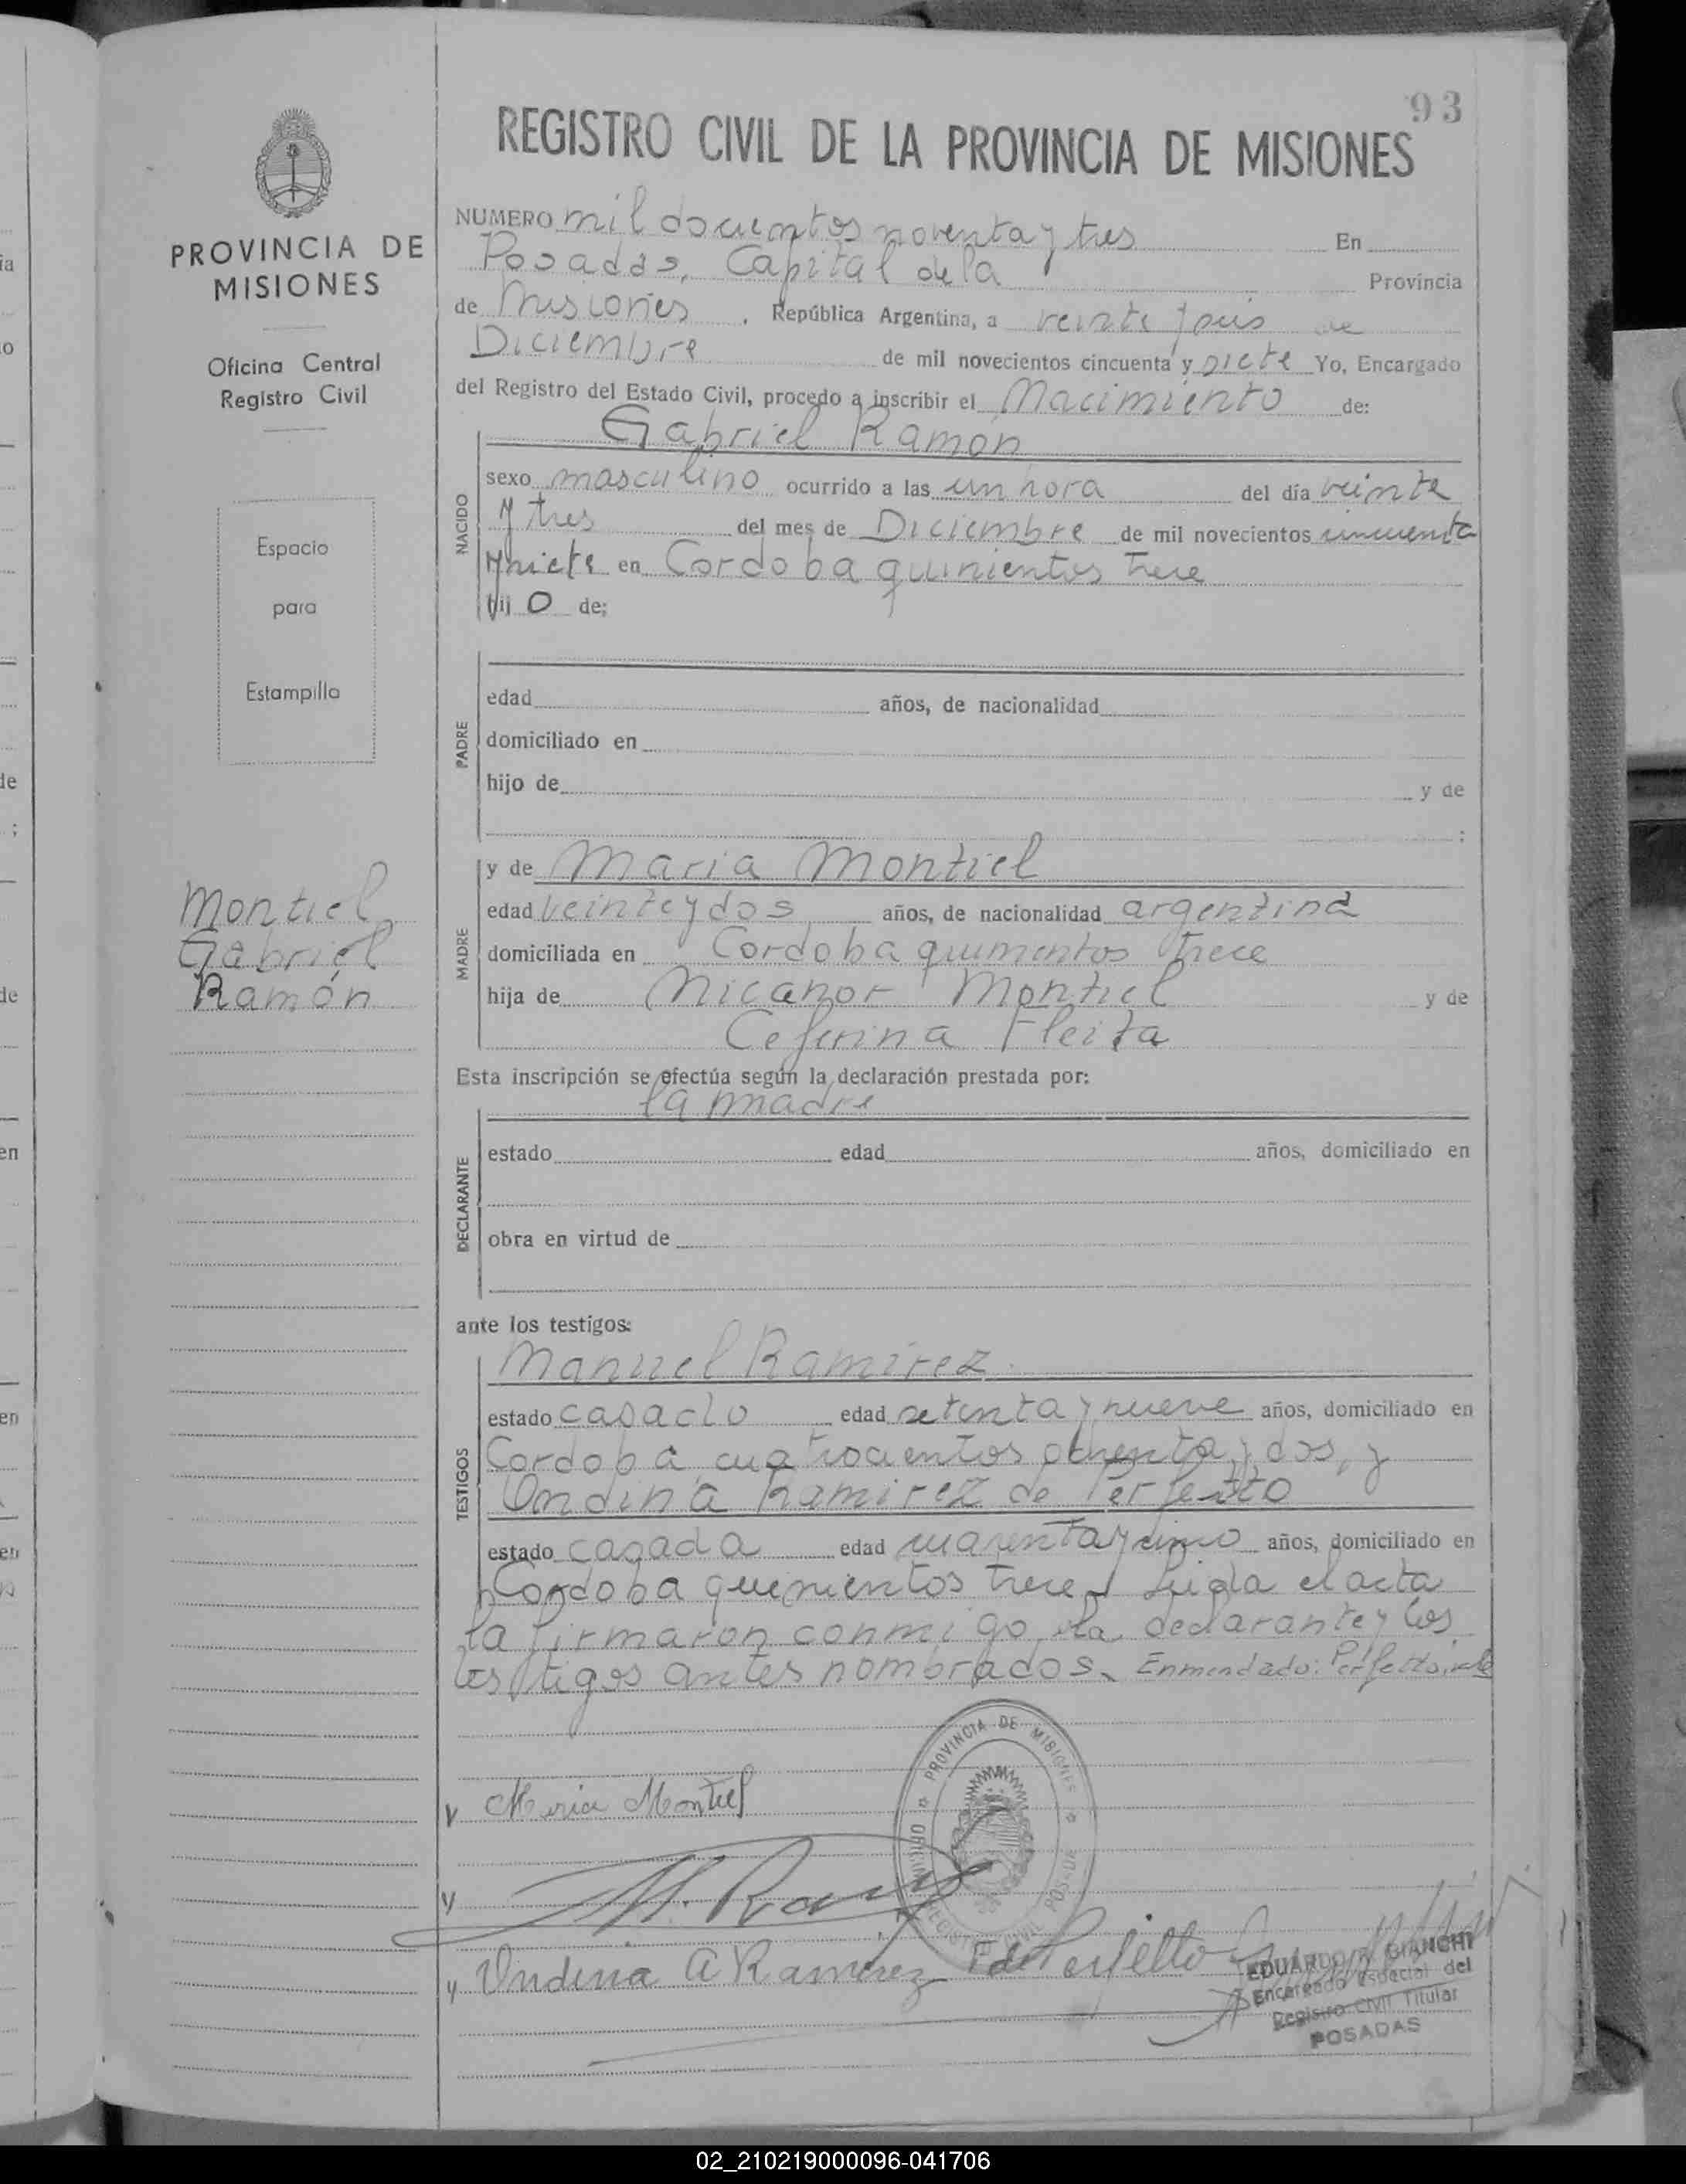 93
REGISTRO CIVIL DE LA PROVINCIA DE MISIONES
PROVINCIA DE
MISIONES
Oficina Central
Registro Civil
Espacio
para
Estampilla
Montiel
Gabriel
Ramón
NUMERO mil doscientos noventa y tres En
Posadas, Capital de la Provincia
de Misiones, República Argentina, a veinte y seis de
Diciembre de mil novecientos cincuenta y siete Yo, Encargado
del Registro del Estado Civil, procedo a inscribir el Nacimiento de:
Gabriel Ramón
NACIDO
sexo masculino ocurrido a las un hora del día veinte
y tres del mes de Diciembre de mil novecientos cincuenta
y siete en Cordoba quinientos trece
hij o de;
PADRE
edad años, de nacionalidad
domiciliado en
hijo de y de
;
MADRE
y de Maria Montiel
edad veinte y dos años, de nacionalidad argentina
domiciliada en Cordoba quinientos trece
hija de Nicanor Montiel y de
Ceferina Fleita
Esta inscripción se efectúa según la declaración prestada por:
la madre
DECLARANTE
estado edad años, domiciliado en
obra en virtud de
ante los testigos:
TESTIGOS
Manuel Ramirez
estado casado edad setenta y nueve años, domiciliado en
Cordoba cuatrocientos ochenta y dos, y
Ondina Ramirez de Perfetto
estado casada edad cuarenta y cinco años, domiciliado en
Cordoba quinientos trece. Leida el acta
la firmaron conmigo, la declarante y los
testigos antes nombrados. Enmendado: Perfetto, vale
Maria Montiel
M. Ram
Undina A Ramirez de Perfetto
PROVINCIA DE MISIONES
REGISTRO CIVIL POSADAS
EDUARDO R. GIANCHI
Encargado Especial del
Registro Civil Titular
POSADAS
02_210219000096-041706